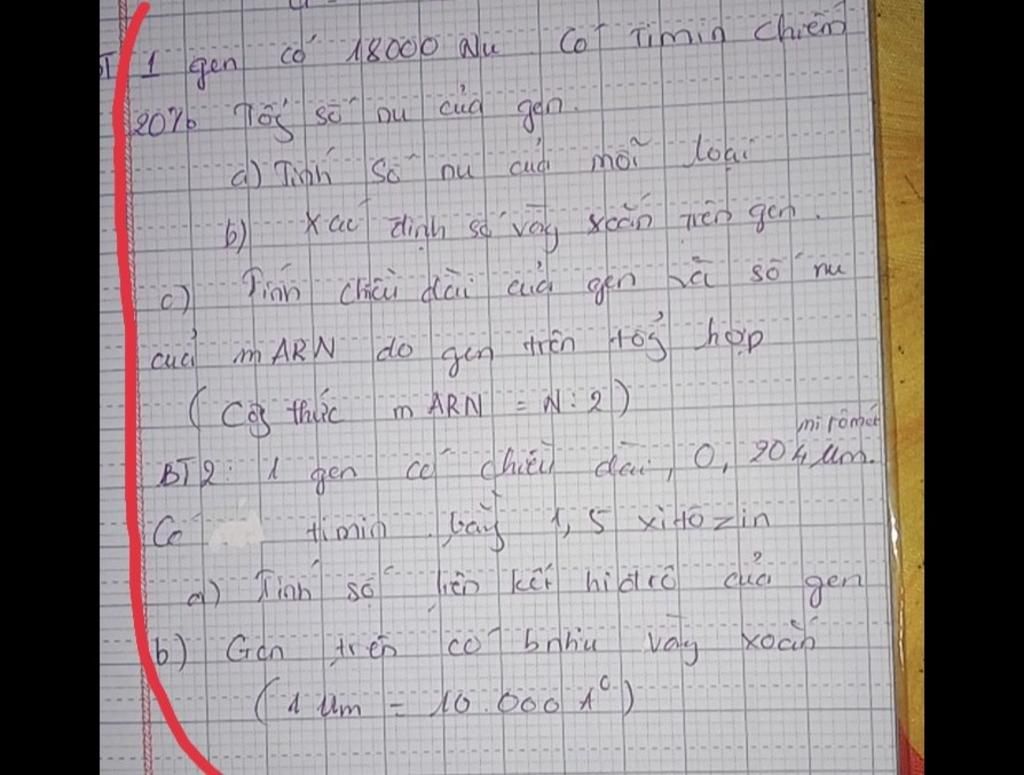 1 gen có 18000 Nu Có Timin chiếm
20% Tổg số nu của gen.
a) Tính Số nu của mỗi loại
b) Xác định số vòg xoắn trên gen.
c) Tính chiều dài của gen và số nu
của mARN do gen trên tổg hợp
(Côg thức mARN = N:2)
mi rômét
BT2: 1 gen có chiều dài, 0, 204 µm.
Có timin bằg 1, 5 xitôzin
a) Tính số liên kết hiđrô của gen
b) Gen trên có bnhiu vòg xoắn
(1 µm = 10.000 A°)